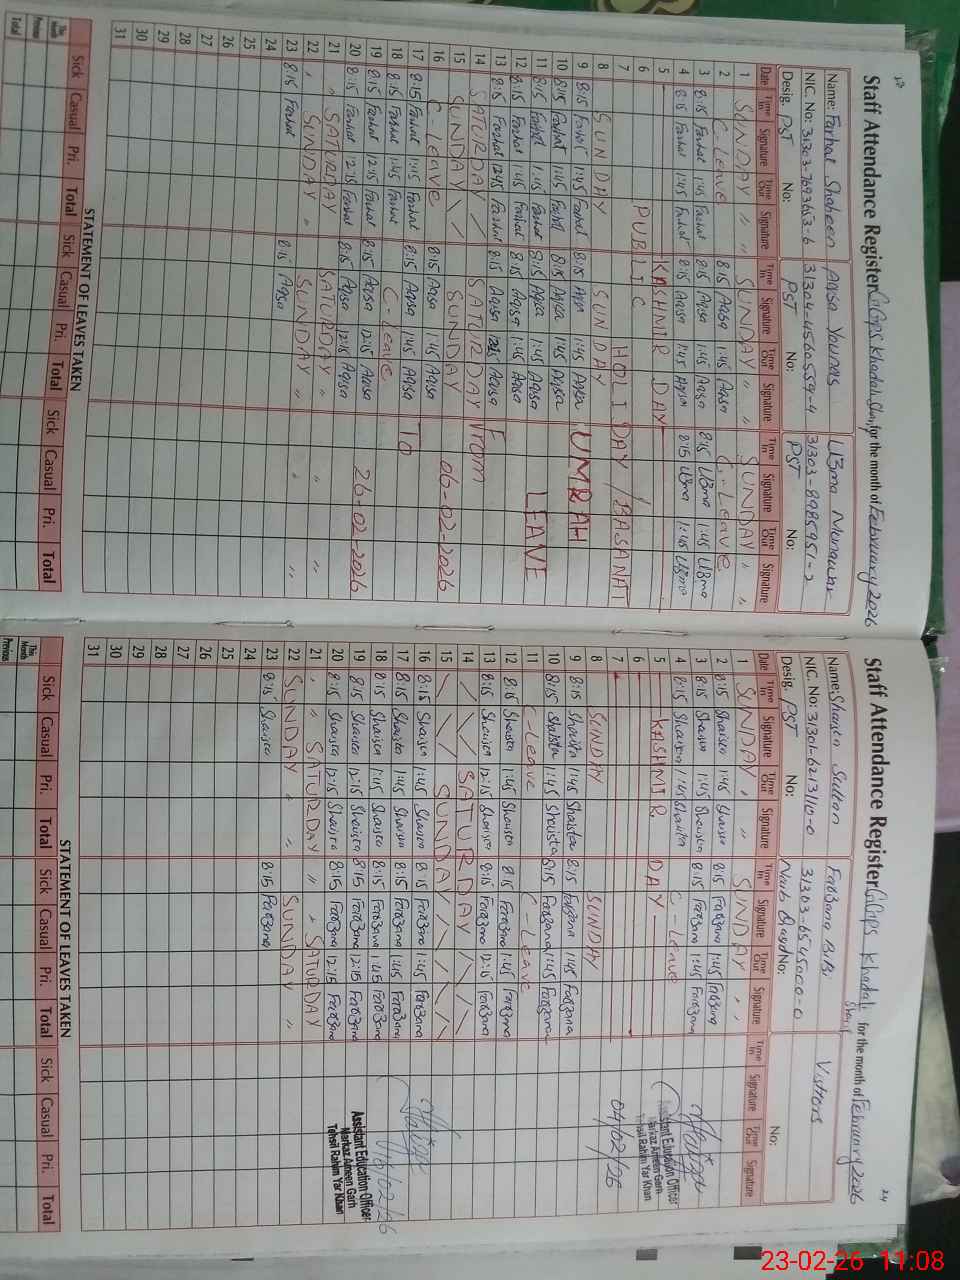 Staff Attendance Register GGPS Khadali Sharif for the month of February 2026
Name: Farhat Shaheen Aqsa Younas Uzma Munawar
NIC. No: 31303-7693653-6 31304-4560559-4 31303-8985951-2
Desig. PST No: PST No: PST No:
Date Time In Signature Time Out Signature Time In Signature Time Out Signature Time In Signature Time Out Signature
1 SUNDAY " " SUNDAY " " SUNDAY " "
2 C-Leave 8:15 Aqsa 1:45 Aqsa C-Leave
3 8:15 Farhat 1:45 Farhat 8:15 Aqsa 1:45 Aqsa 8:15 Uzma 1:45 Uzma
4 8:15 Farhat 1:45 Farhat 8:15 Aqsa 1:45 Aqsa 8:15 Uzma 1:45 Uzma
5 KASHMIR DAY
6 PUBLIC HOLIDAY / BASANAT
7
8 SUNDAY SUNDAY
9 8:15 Farhat 1:45 Farhat 8:15 Aqsa 1:45 Aqsa UMRAH
10 8:15 Farhat 1:45 Farhat 8:15 Aqsa 1:45 Aqsa
11 8:15 Farhat 1:45 Farhat 8:15 Aqsa 1:45 Aqsa LEAVE
12 8:15 Farhat 1:45 Farhat 8:15 Aqsa 1:45 Aqsa
13 8:15 Farhat 12:45 Farhat 8:15 Aqsa Aqsa FROM
14 SATURDAY SATURDAY
15 SUNDAY SUNDAY 06-02-2026
16 C-Leave 8:15 Aqsa 1:45 Aqsa
17 8:15 Farhat 1:45 Farhat 8:15 Aqsa 1:45 Aqsa TO
18 8:15 Farhat 1:45 Farhat C-Leave
19 8:15 Farhat 12:15 Farhat 8:15 Aqsa 12:15 Aqsa 26-02-2026
20 8:15 Farhat 12:15 Farhat 8:15 Aqsa 12:15 Aqsa
21 " SATURDAY SATURDAY " " "
22 " SUNDAY " SUNDAY " " "
23 8:15 Farhat 8:15 Aqsa
24
25
26
27
28
29
30
31
STATEMENT OF LEAVES TAKEN
Sick Casual Pri. Total Sick Casual Pri. Total Sick Casual Pri. Total
This Month
Previous
Total
24
Staff Attendance Register GGPS Khadali Sharif for the month of February 2026
Name: Shaista Farzana Bibi Visitors
NIC. No: 31301-6213110-0 31303-6545000-0
Desig. PST No: No: No:
Date Time In Signature Time Out Signature Time In Signature Time Out Signature Time In Signature Time Out Signature
1 SUNDAY " " SUNDAY " "
2 8:15 Shaista 1:45 Shaista 8:15 Farzana 1:45 Farzana
3 8:15 Shaista 1:45 Shaista 8:15 Farzana 1:45 Farzana
4 8:15 Shaista 1:45 Shaista C-Leave
5 KASHMIR DAY
Assistant Education Officer
Markaz Ameen Garh
Tehsil Rahim Yar Khan
6
7 04/02/26
8 SUNDAY SUNDAY
9 8:15 Shaista 1:45 Shaista 8:15 Farzana 1:45 Farzana
10 8:15 Shaista 1:45 Shaista 8:15 Farzana 1:45 Farzana
11 C-Leave C-Leave
12 8:15 Shaista 1:45 Shaista 8:15 Farzana 1:45 Farzana
13 8:15 Shaista 12:15 Shaista 8:15 Farzana 12:15 Farzana
14 SATURDAY
15 SUNDAY
16 8:15 Shaista 1:45 Shaista 8:15 Farzana 1:45 Farzana
17 8:15 Shaista 1:45 Shaista 8:15 Farzana 1:45 Farzana
18 8:15 Shaista 1:45 Shaista 8:15 Farzana 1:45 Farzana
19 8:15 Shaista 12:15 Shaista 8:15 Farzana 12:15 Farzana
20 8:15 Shaista 12:15 Shaista 8:15 Farzana 12:15 Farzana
Assistant Education Officer
Markaz Ameen Garh
Tehsil Rahim Yar Khan
21 " " SATURDAY " " SATURDAY
22 SUNDAY " " SUNDAY "
23 8:15 Shaista 8:15 Farzana
24
25
26
27
28
29
30
31
STATEMENT OF LEAVES TAKEN
Sick Casual Pri. Total Sick Casual Pri. Total Sick Casual Pri. Total
This Month
Previous
23-02-26 11:08